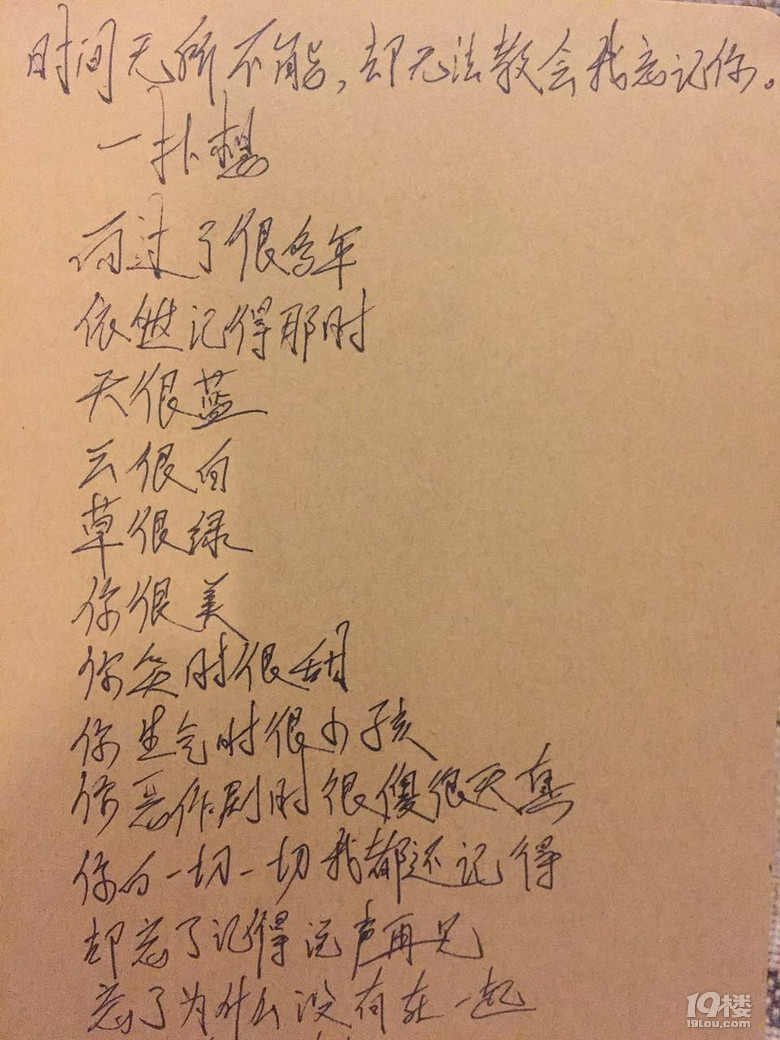 时间无所不能，却无法教会我忘记你。
一扑想
而过了很多年
依然记得那时
天很蓝
云很白
草很绿
你很美
你笑时很甜
你生气时很小孩
你恶作剧时很傻很天真
你的一切一切我都还记得
却忘了记得说声再见
忘了为什么没有在一起
19楼
19lou.com